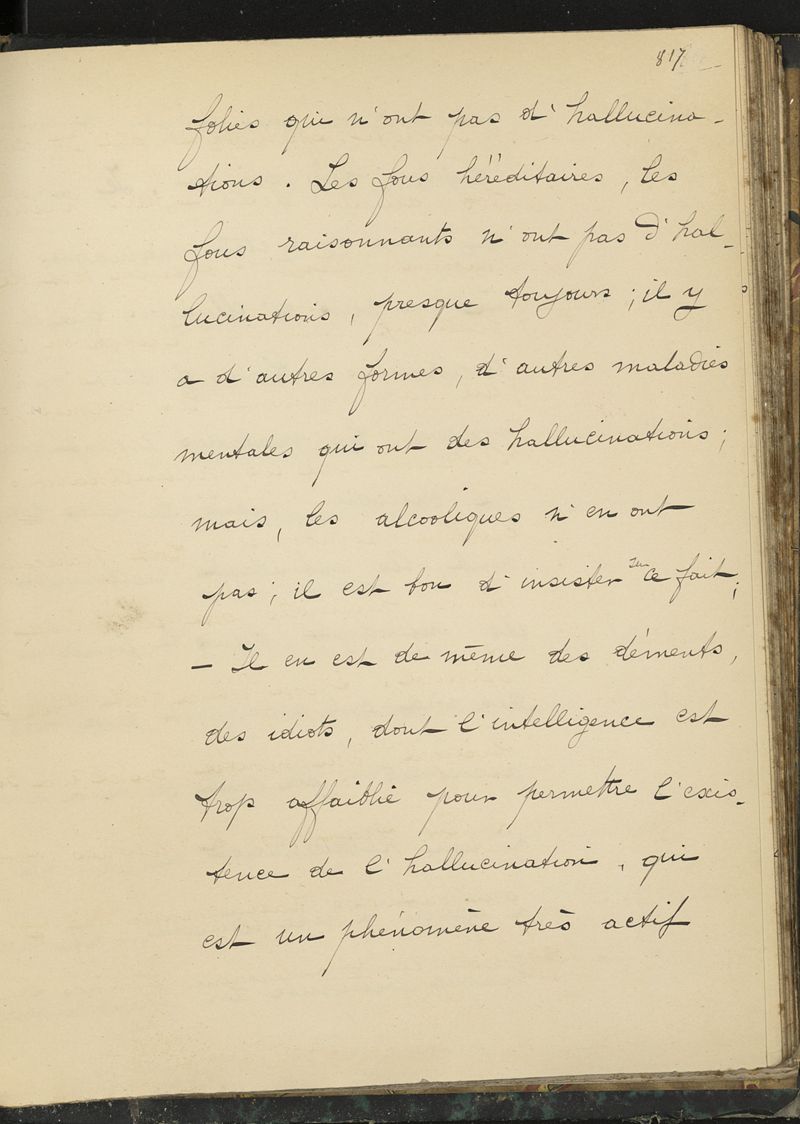 817
folies qui n'ont pas d'hallucina-
tions. Les fous héréditaires, les
fous raisonnants n'ont pas d'hal-
lucinations, presque toujours; il y
a d'autres formes, d'autres maladies
mentales qui ont des hallucinations;
mais, les alcooliques n'en ont
pas; il est bon d'insister sur ce fait;
— Il en est de même des déments,
des idiots, dont l'intelligence est
trop affaiblie pour permettre l'exis-
tence de l'hallucination, qui
est un phénomène très actif